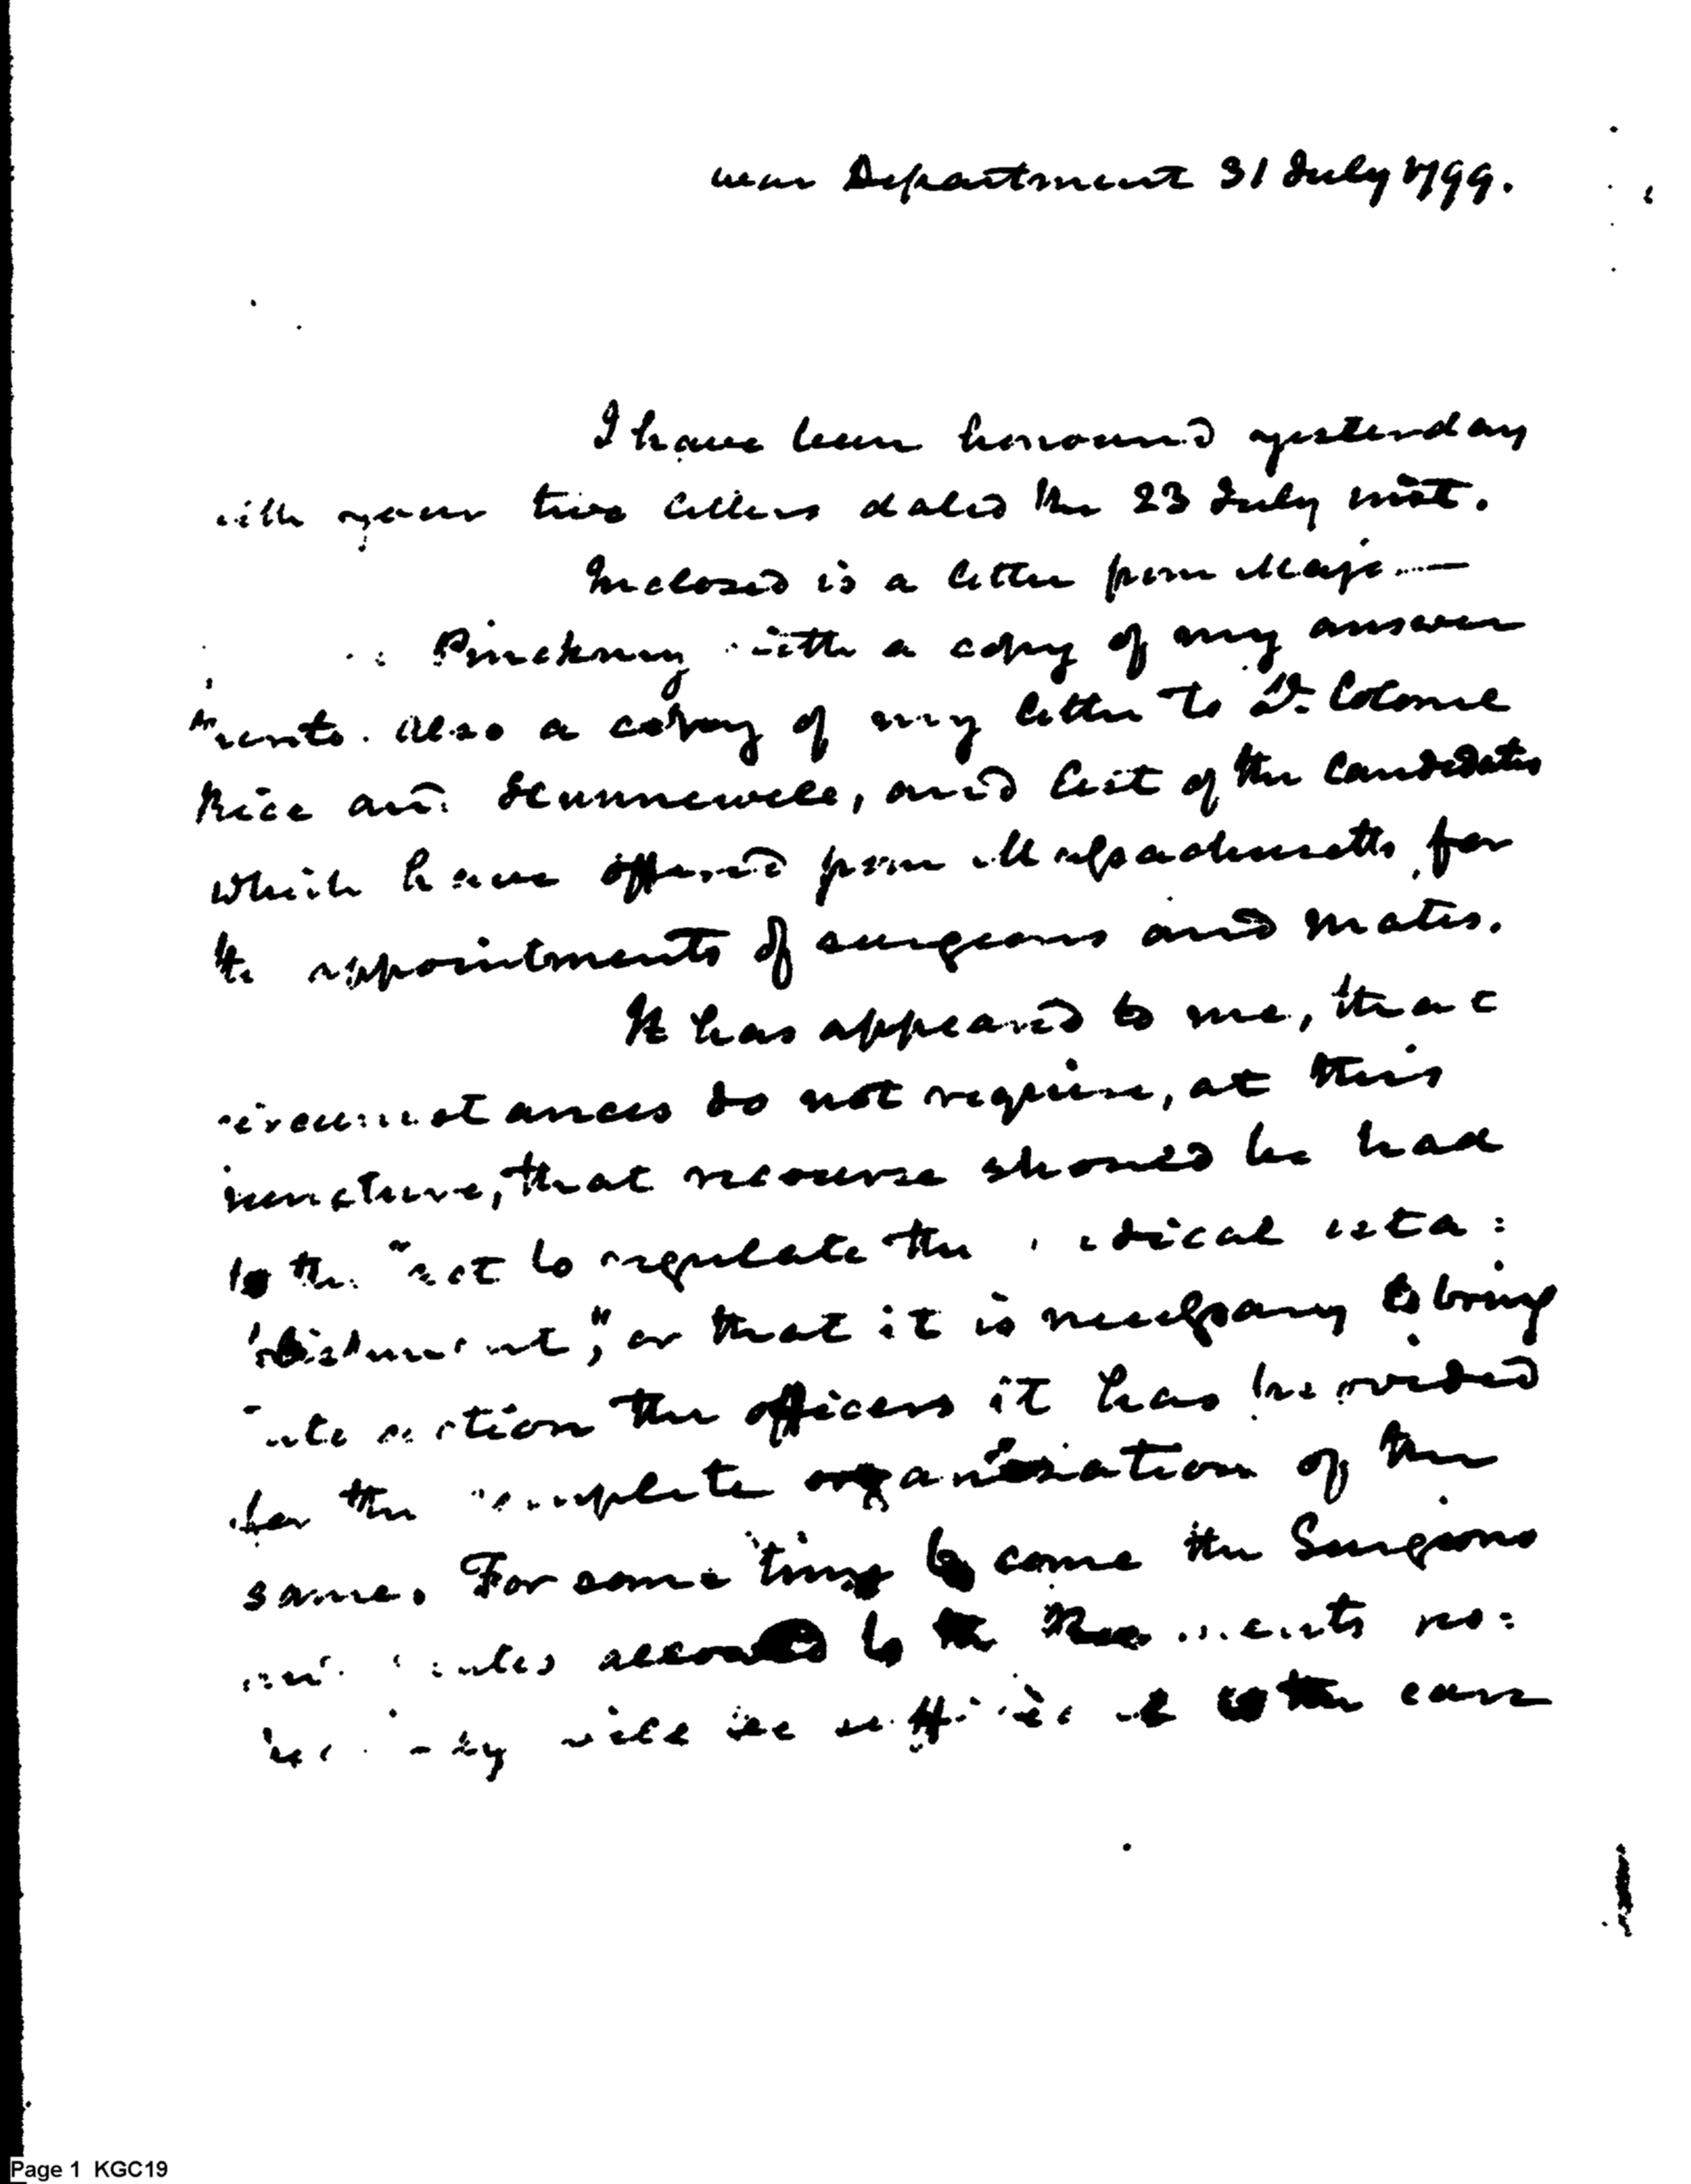 war Department 31 July 1799.
I have been honoured yesterday
with your two letters dated the 23 July inst.
Inclosed is a letter from Major
Pinckney with a copy of my answer
thereto. Also a copy of my letter to Lt. Colonels
Rice and Hunnewell, and list of the Candidates
which have offered from Massachusetts for
the appointments of surgeons and mates.
It has appeared to me, that
circumstances do not require, at this
juncture, that recourse should be had
to the "act to regulate the medical esta=
blishment", or that it is necessary to bring
into action the officers it has provided
for the complete organization of the
same. For some time to come the Surgeons
and mates allowed to the Regiments res=
pectively will be sufficient to the care
Page 1 KGC19